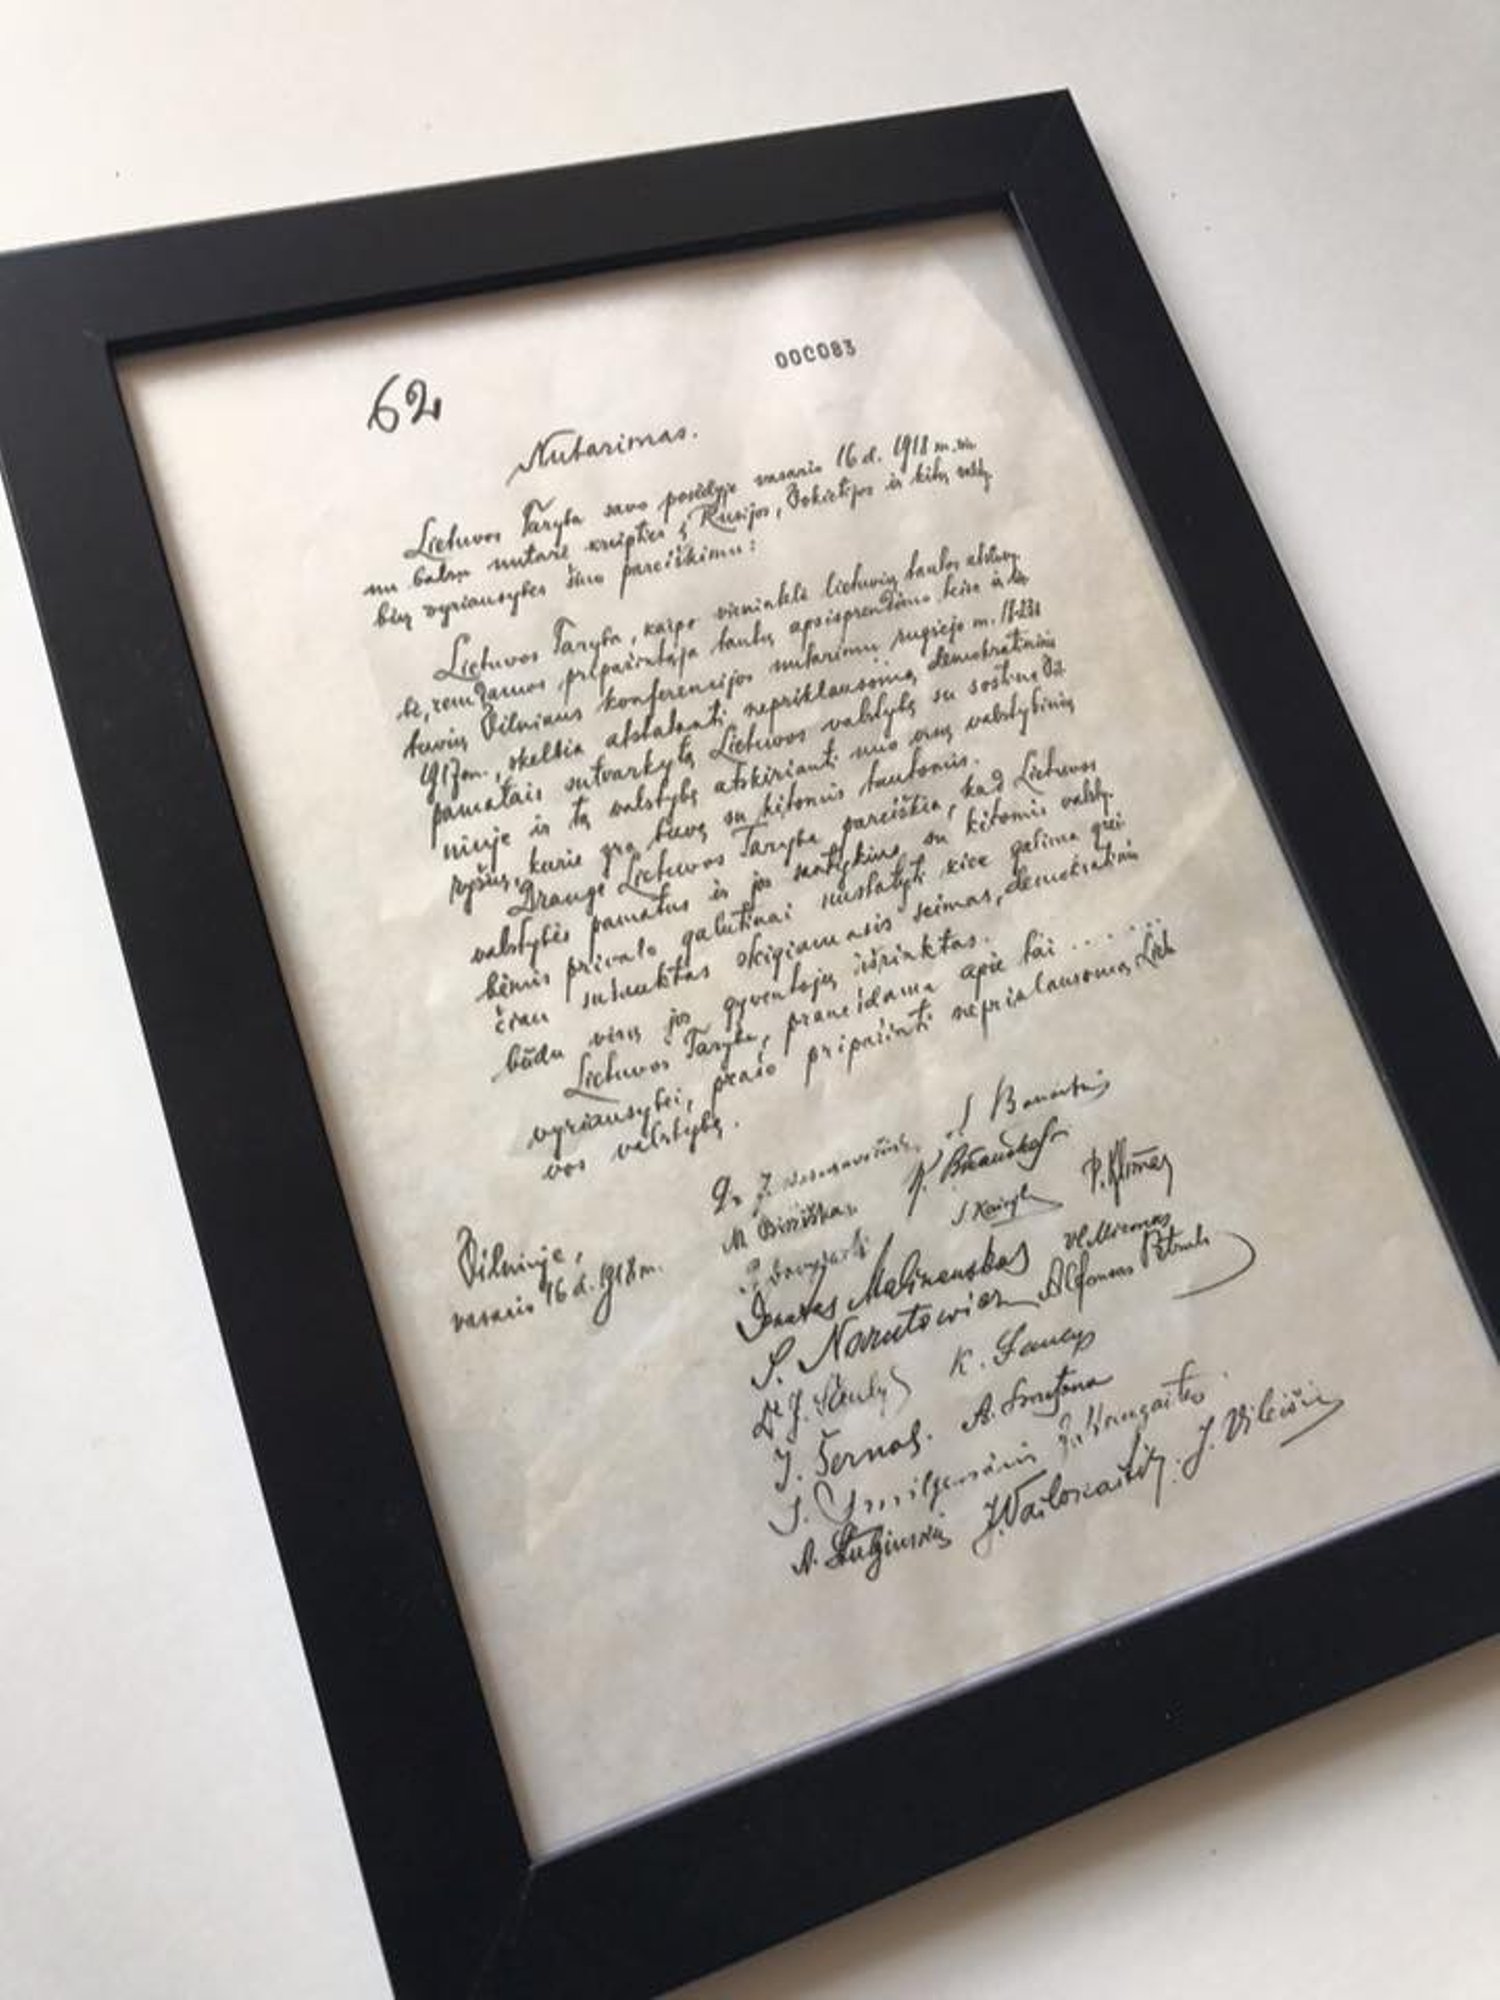 62
000083
Nutarimas.
Lietuvos Taryba savo posėdyje vasario 16 d. 1918 m. vie
nu balsu nutarė kreiptis į Rusijos, Vokietijos ir kitų valsty
bių vyriausybes šiuo pareiškimu:
Lietuvos Taryba, kaipo vienintelė lietuvių tautos atstovy
bė, remdamos pripažintąja tautų apsisprendimo teise ir lie
tuvių Vilniaus konferencijos nutarimu rugsėjo m. 18-23 d
1917 m., skelbia atstatanti nepriklausomą demokratiniais
pamatais sutvarkytą Lietuvos valstybę su sostine Vil
niuje ir tą valstybę atskirianti nuo visų valstybinių
ryšių, kurie yra buvę su kitomis tautomis.
Drauge Lietuvos Taryba pareiškia, kad Lietuvos
valstybės pamatus ir jos santykius su kitomis valsty-
bėmis privalo galutinai nustatyti kiek galima grei
čiau sušauktas steigiamasis seimas, demokratiniu
būdu visų jos gyventojų išrinktas.
Lietuvos Taryba, pranešdama apie tai . . . . . . .
vyriausybei, prašo pripažinti nepriklausomą Lietu
vos valstybę.
Vilniuje,
vasario 16 d. 1918 m.
Dr J. Basanavičius S Banaitis
M Biržiška K. Bizauskas
P. Dovydaitis S Kairys P. Klimas
Donatas Malinauskas Vl Mironas
S. Narutowicz Alfonsas Petrulis
Dr J. Šaulys K. Šaulys
J. Šernas. A. Smetona
J. Smilgevičius J. Staugaitis
A. Stulginskis J. Vailokaitis. J. Vileišis